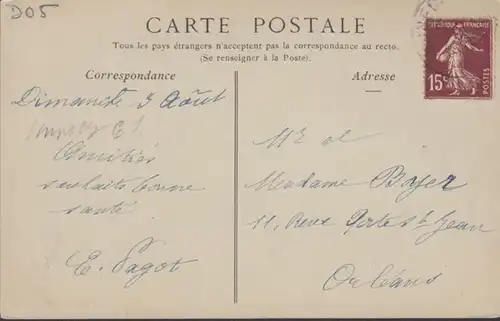 D05
CARTE POSTALE
Tous les pays étrangers n'acceptent pas la correspondance au recto.
(Se renseigner à la Poste).
Correspondance
Adresse
REPUBLIQUE FRANÇAISE
15c
POSTES
Dimanche 9 Août
Amitiés
souhaits bonne
santé
E. Pagot
Mr et
Madame Boyer
11, Rue Porte St Jean
Orléans